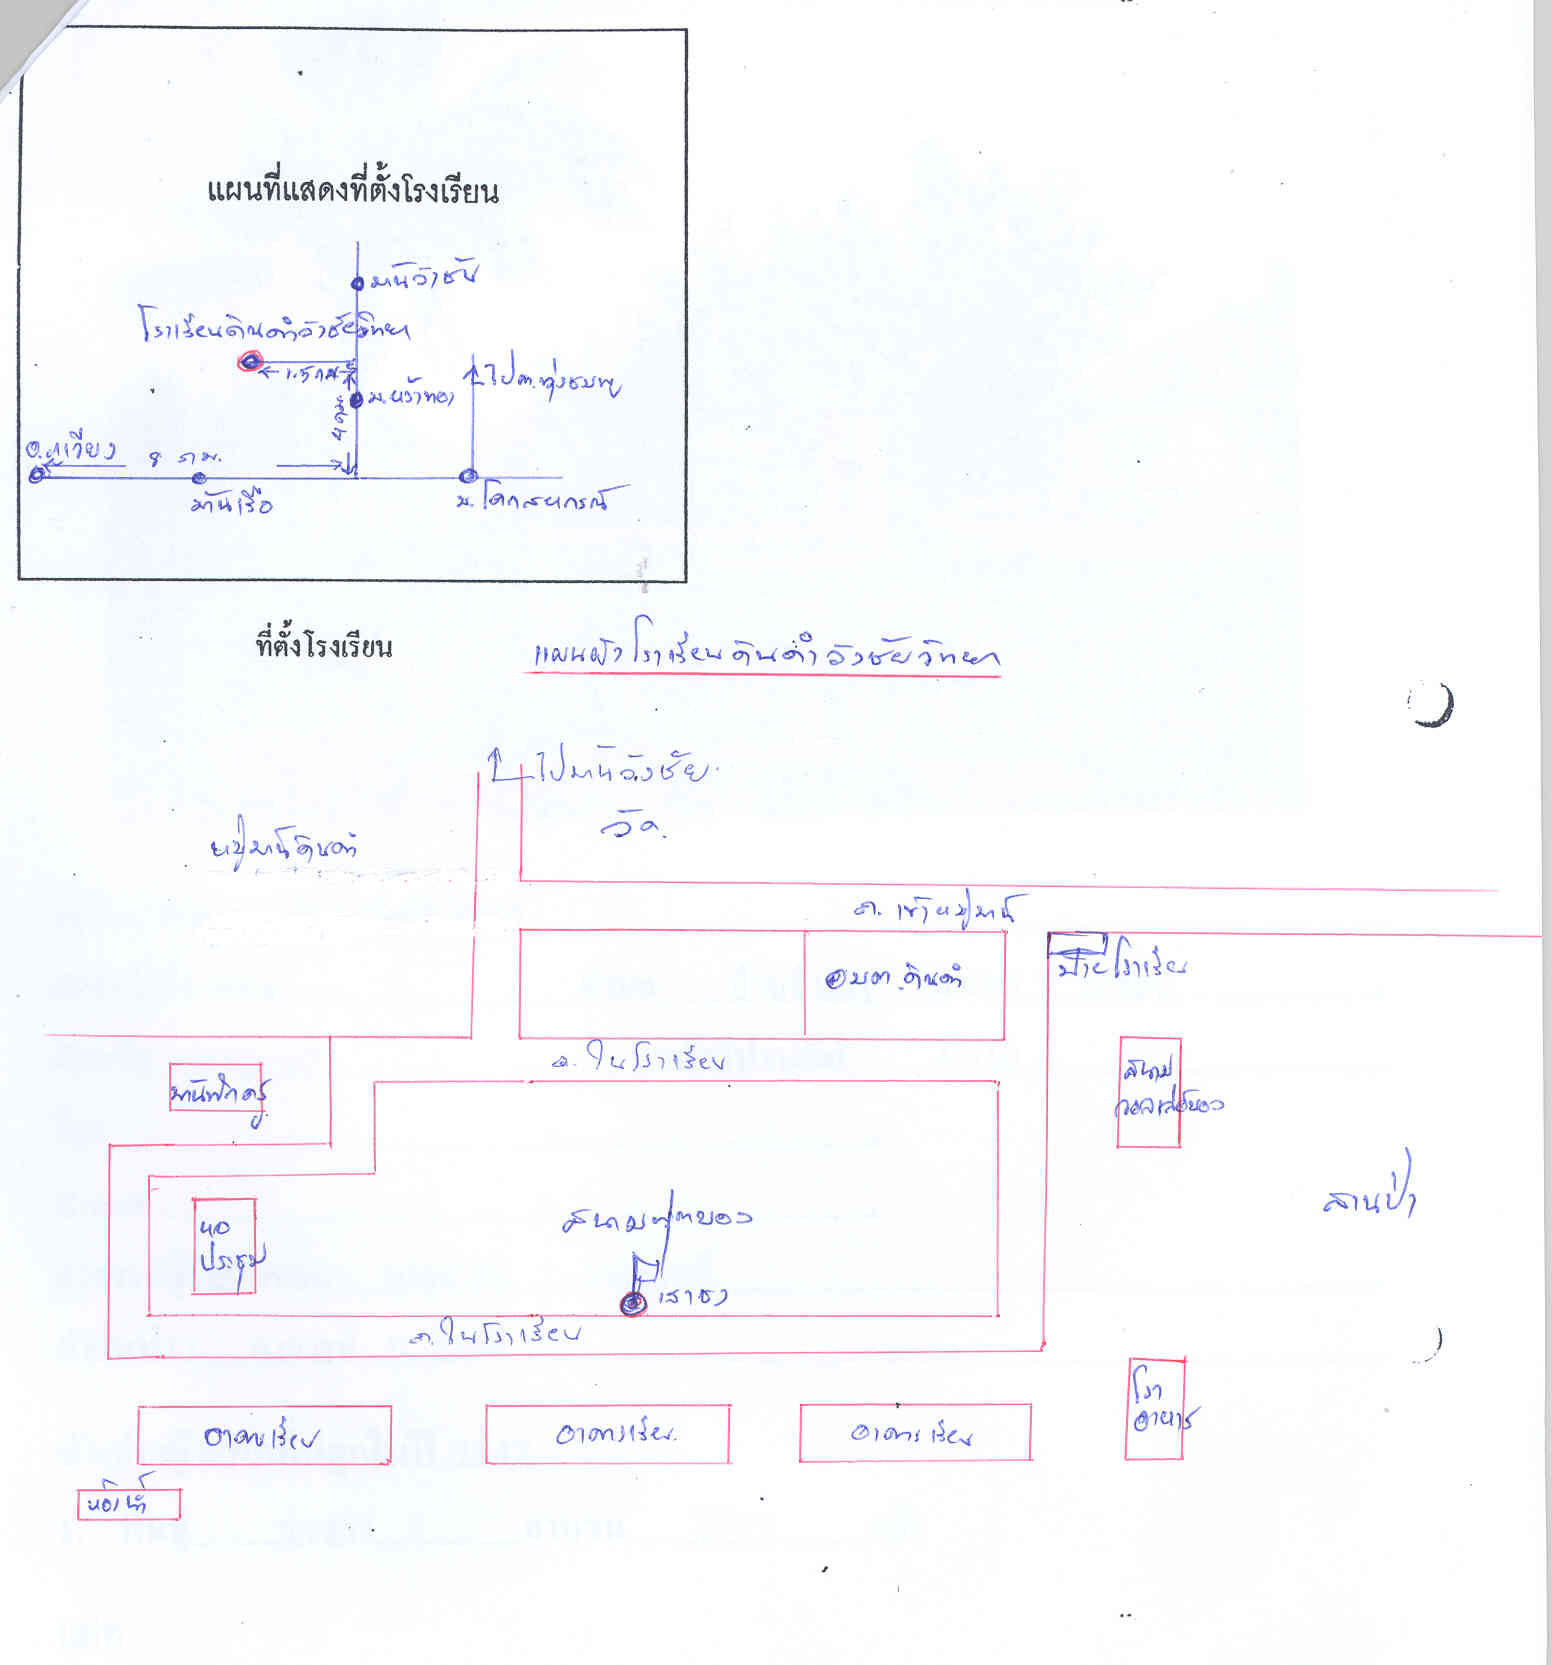 แผนที่แสดงที่ตั้งโรงเรียน
บ้านวังชัย
โรงเรียนดินดำวังชัยวิทยา
1.5 กม
ไปต.ทุ่งชมพู
บ.หว้าทอง
4 กม
อ.ภูเวียง
8 กม.
บ้านเรือ
บ.โคกสหกรณ์
ที่ตั้งโรงเรียน
แผนผังโรงเรียนดินดำวังชัยวิทยา
ไปบ้านวังชัย
วัด.
หมู่บ้านดินดำ
ถ. เข้าหมู่บ้าน
อบต.ดินดำ
ป้ายโรงเรียน
ถ. ในโรงเรียน
บ้านพักครู
สนาม
วอลเล่ย์บอล
สวนป่า
หอ
ประชุม
สนามฟุตบอล
เสาธง
ถ. ในโรงเรียน
โรง
อาหาร
อาคารเรียน
อาคารเรียน.
อาคารเรียน
ห้องน้ำ